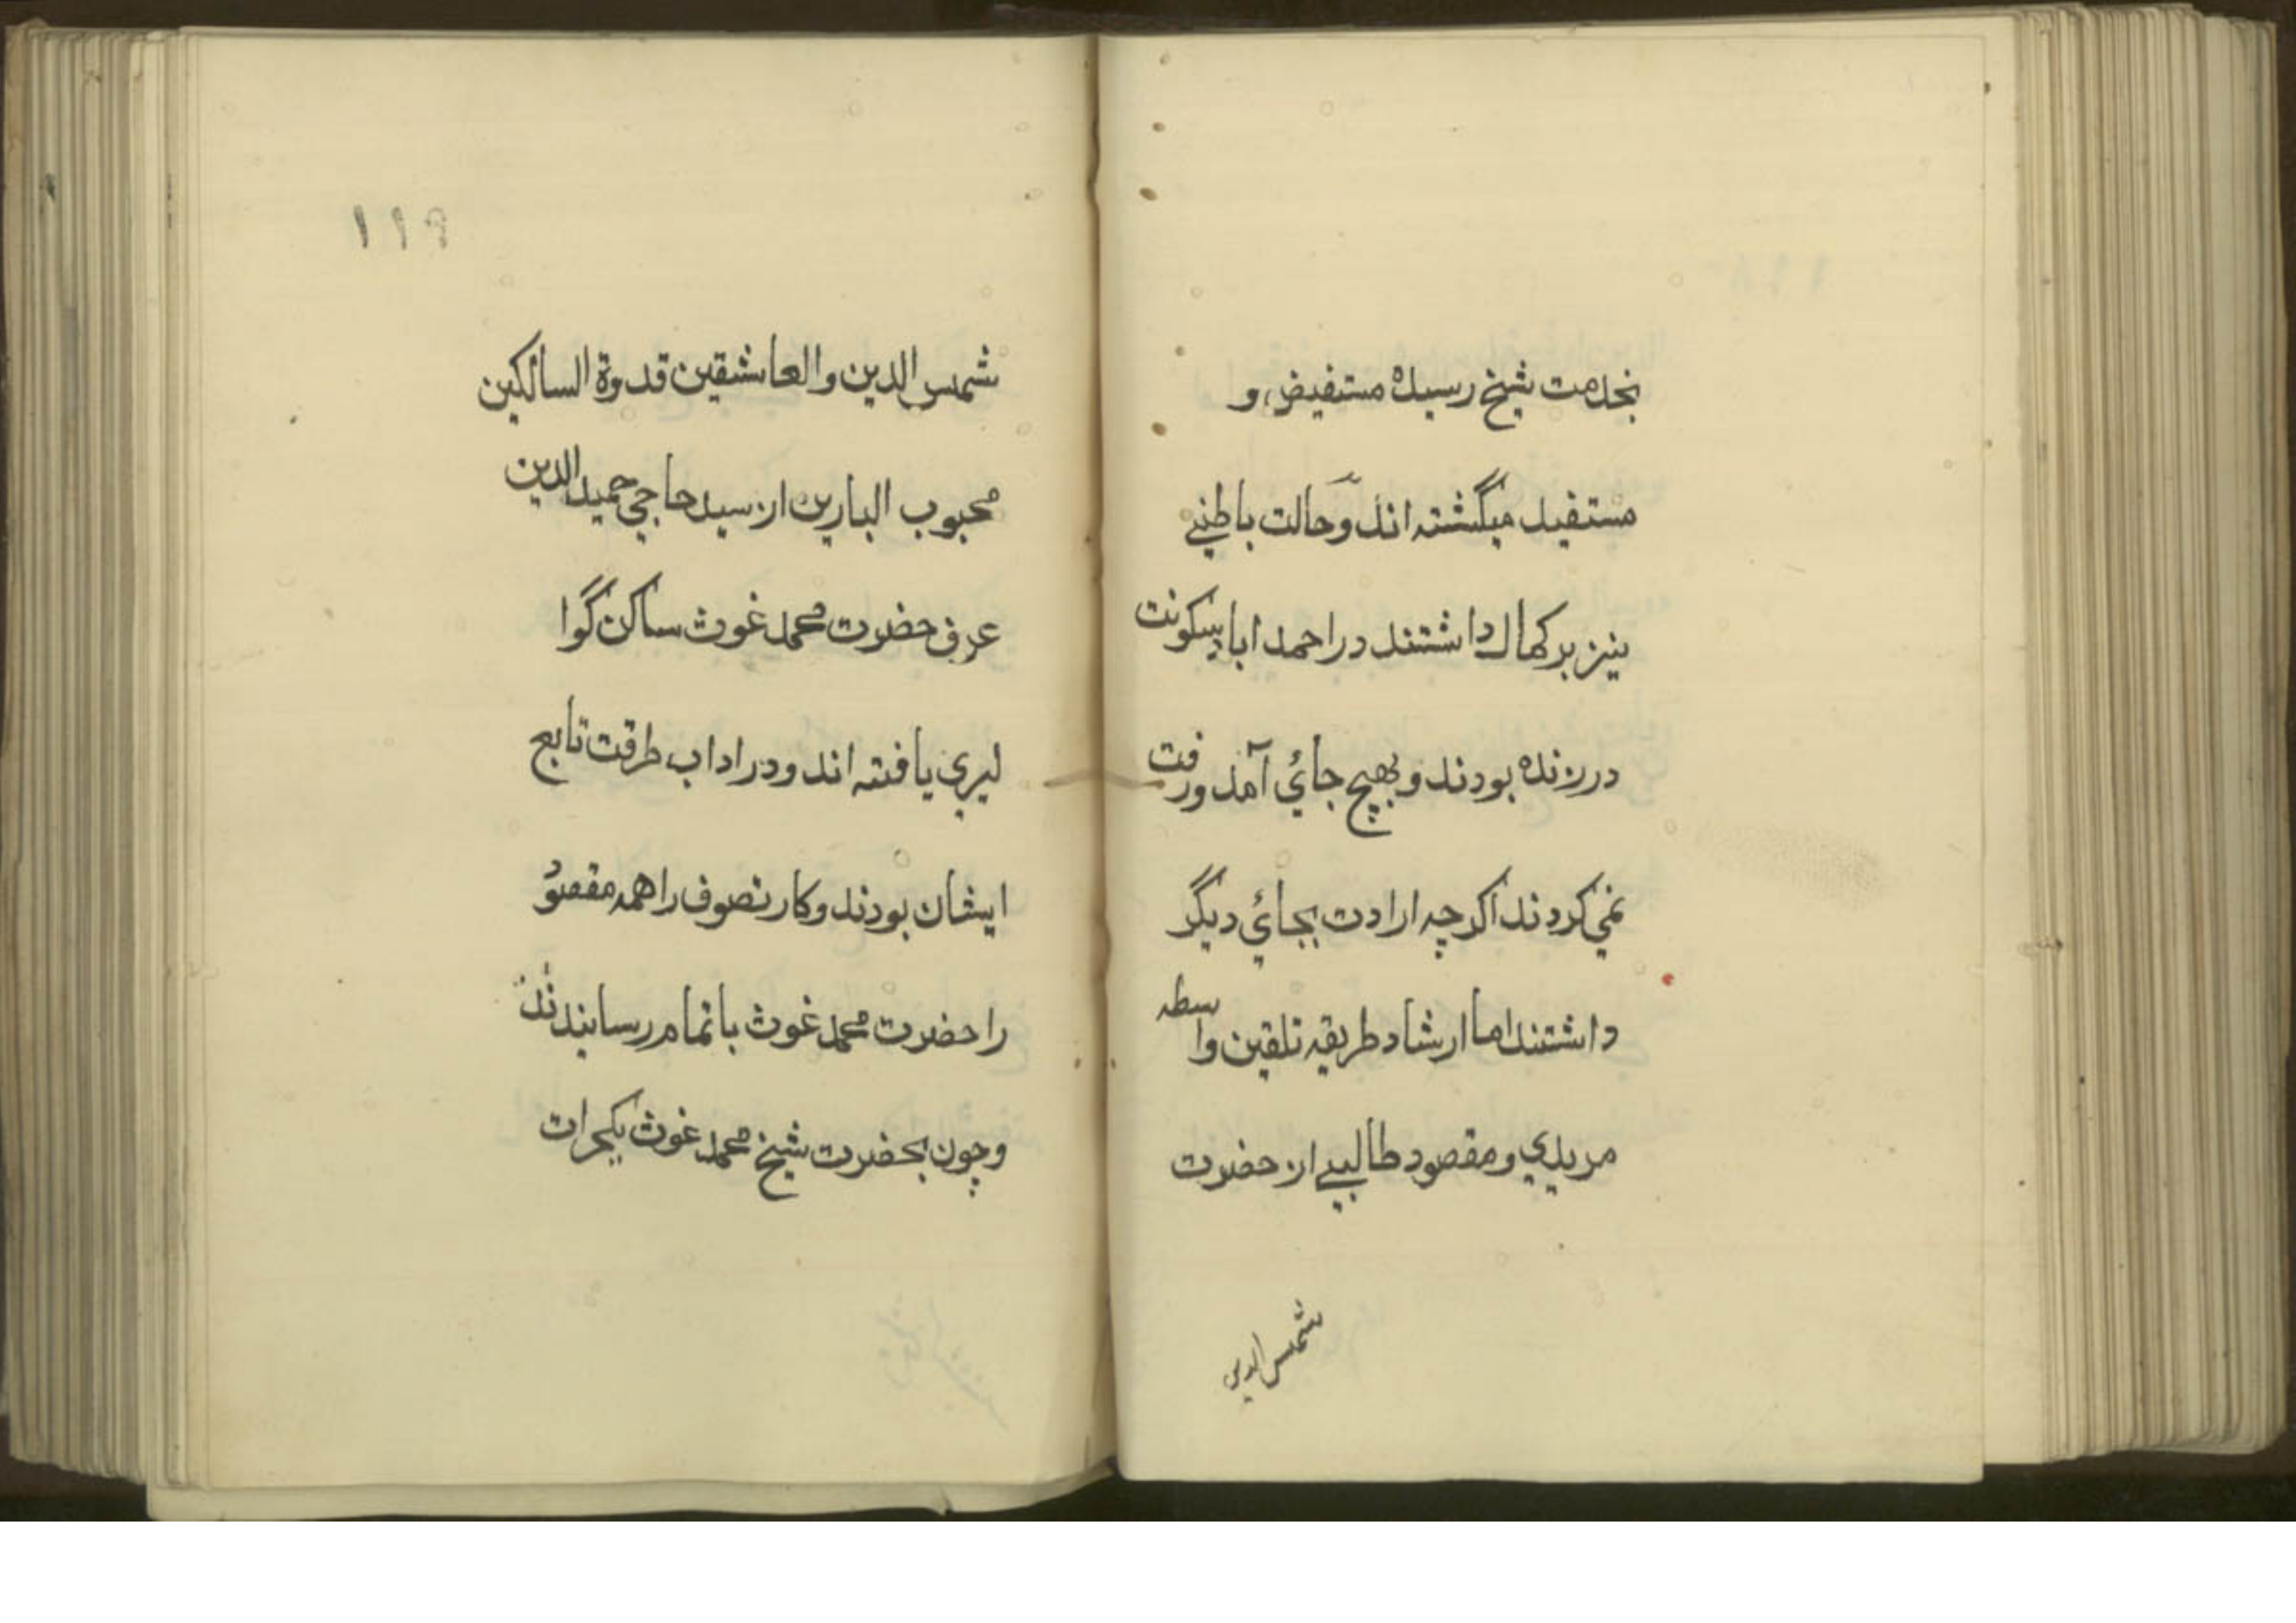 بخدمت شیخ رسیده مستفیض و
مستفید میگشته اند و حالت باطنے
نیز برکمال داشتند در احمد اباد سکونت
در زنده بودند و بهیچ جائ آمد و رفت
نمي کردند اگرچه ارادت بجائ دیگر
داشتند اما ارشاد طریقه تلقین واسطه
مریدي و مقصود طالبے از حضرت
شمس الدین
۱۱۹
شمس الدین والعاشقین قدوة السالکین
محبوب البارین از سید حاجي حمید الدین
عرف حضرت محمد غوث ساکن گوا
لیري یافته اند و در اداب طرقت تابع
ایشان بودند و کار تصوف را همه مقصود
را حضرت محمد غوث باتمام رسانیدند
و چون بحضرت شیخ محمد غوث بگجرات